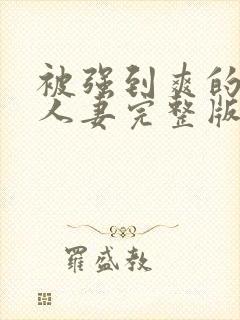 被强到爽的
人妻完整版
羅盛教